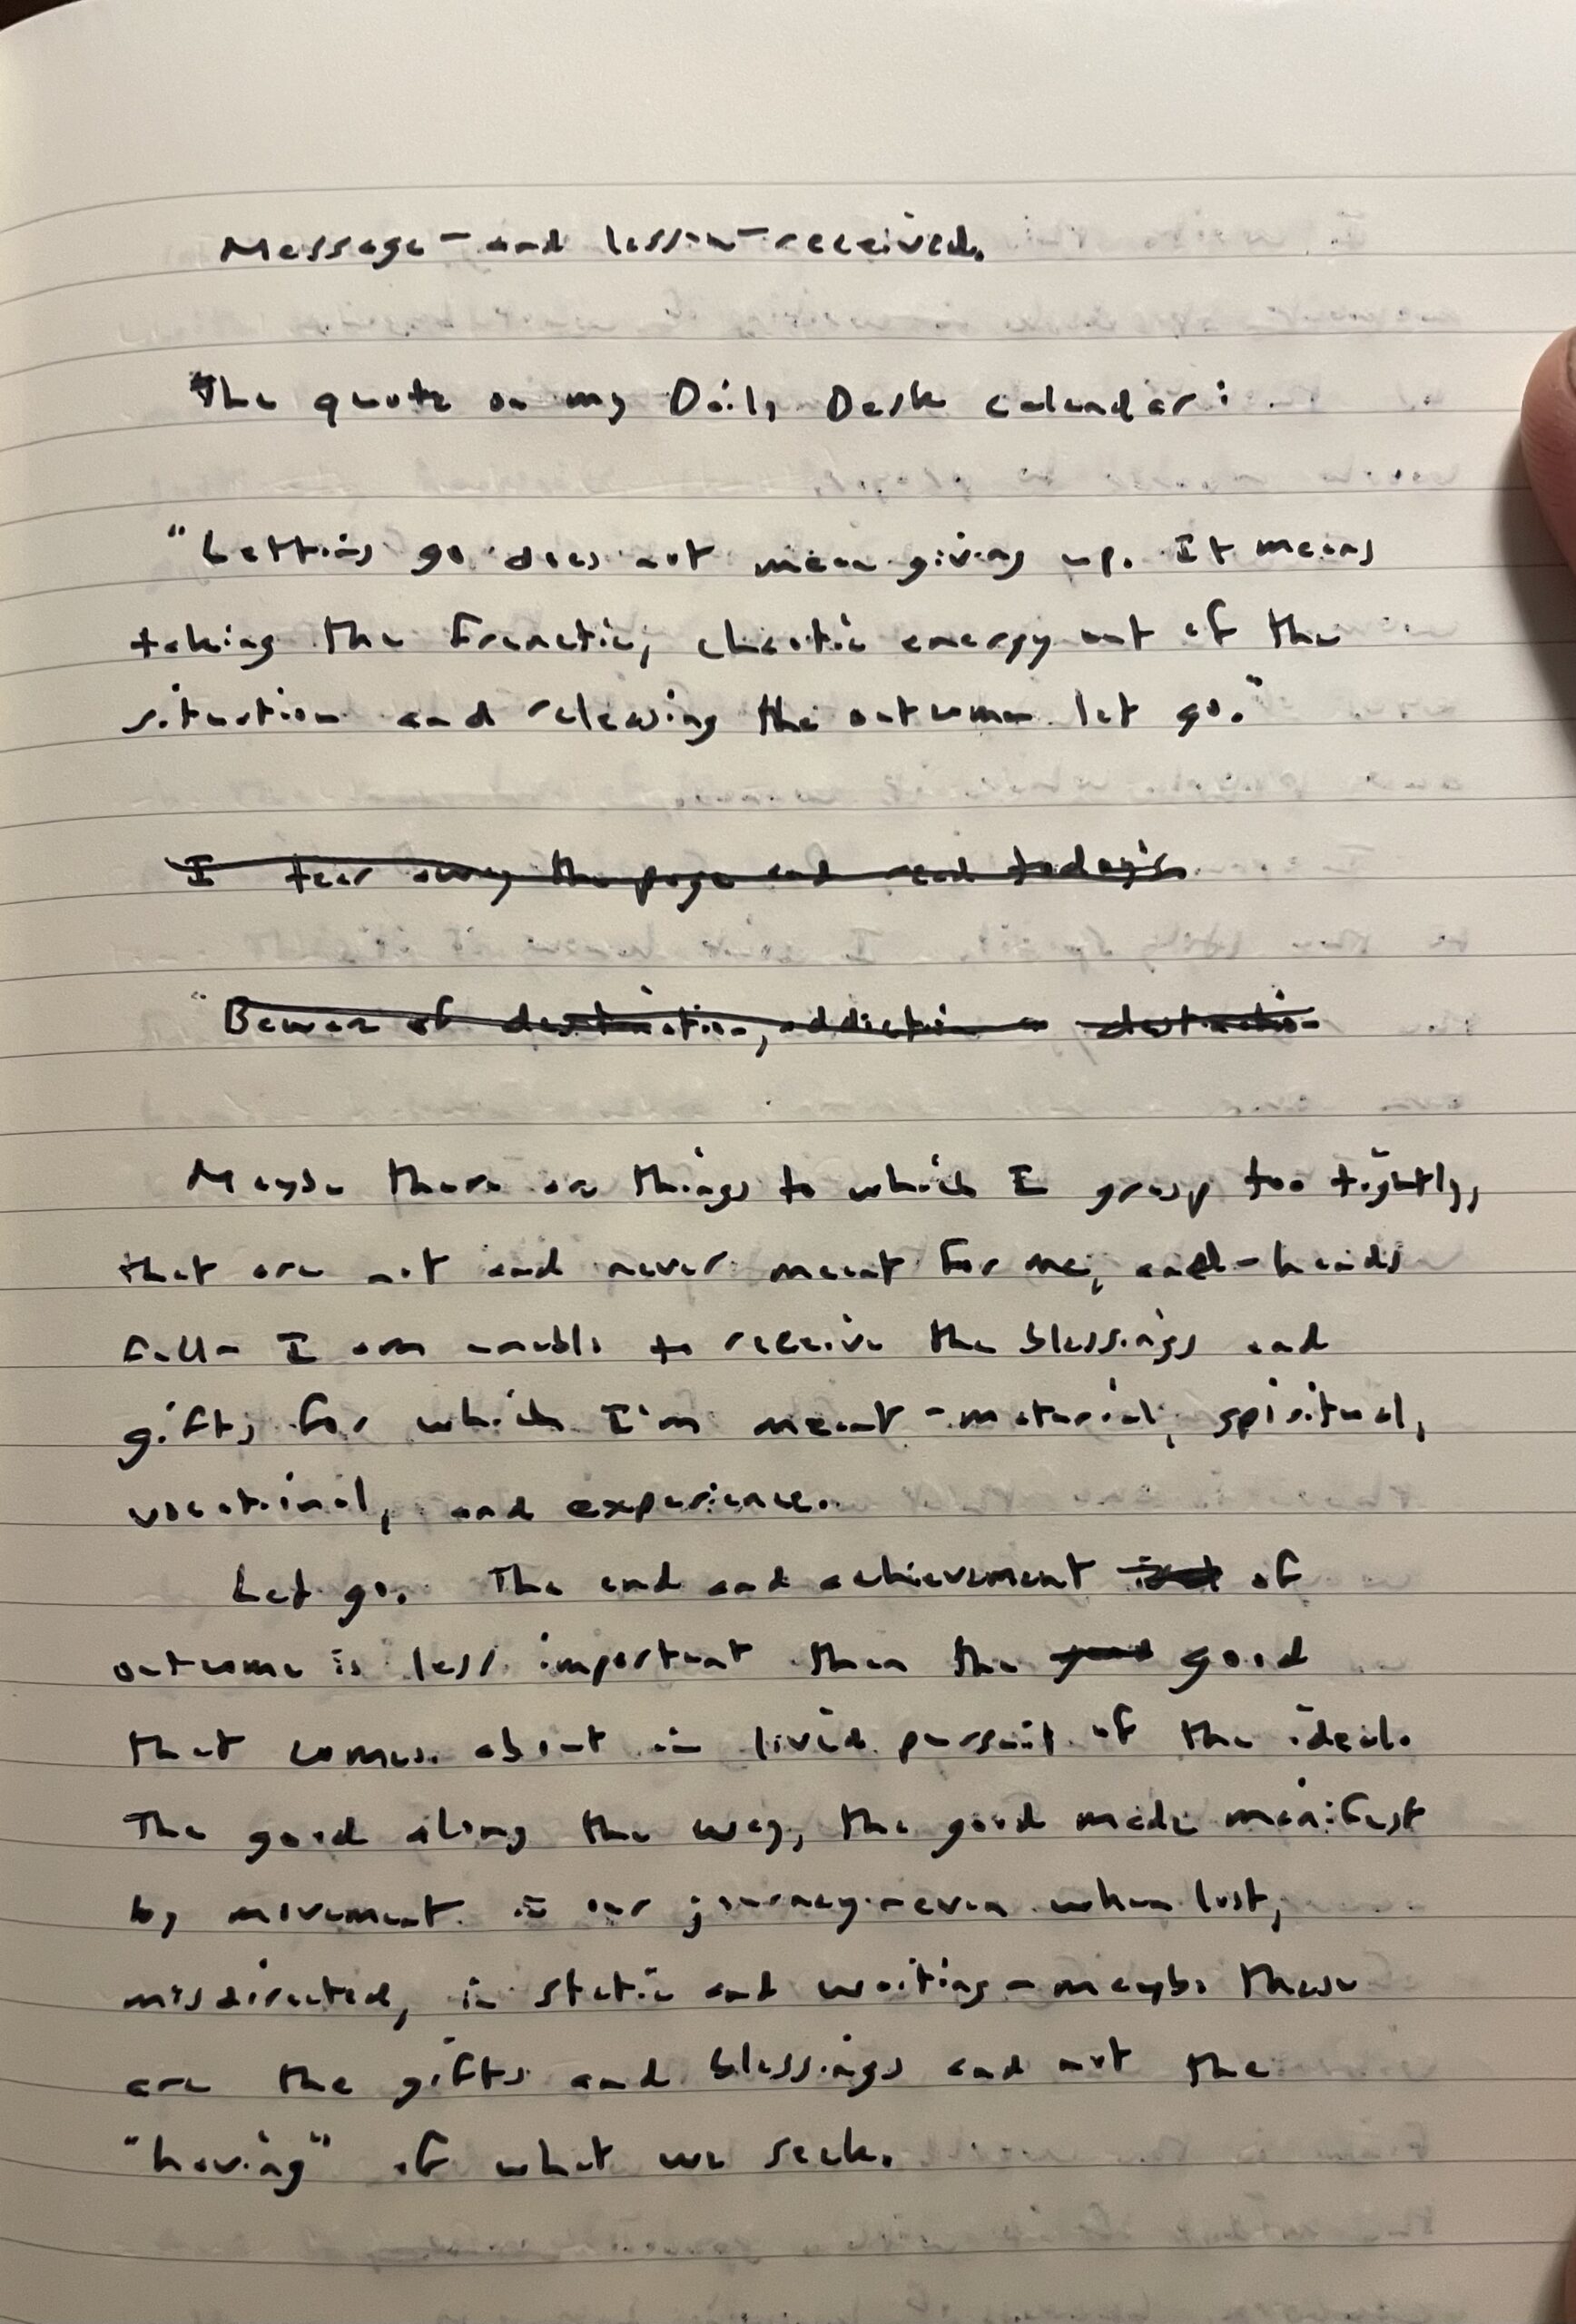 Message - and lesson - received.
The quote on my Daily Desk calendar:
"Letting go does not mean giving up. It means
taking the frenetic, chaotic energy out of the
situation and releasing the outcome let go."
I tear away the page and read today's
"Beware of destruction, addiction
Maybe there are things to which I grasp too tightly,
that are not and never meant for me, and - hands
full - I am unable to receive the blessings and
gifts for which I'm meant - material, spiritual,
vocational, and experience.
Let go. The end and achievement of
outcome is less important than the good
that comes about in lived pursuit of the ideal.
The good along the way, the good made manifest
by movement in our journey - even when lost,
misdirected, in static and waiting - maybe these
are the gifts and blessings and not the
"having" of what we seek.